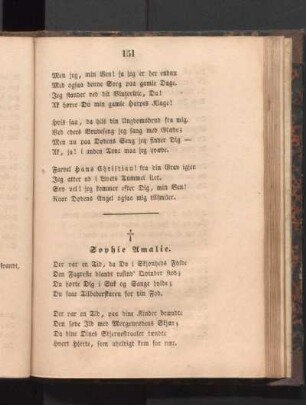 151
Men jeg, min Ven! ja jeg er her endnu
Med ogsaa denne Sorg paa gamle Dage.
Jeg stander ved dit Vinterleie, Du!
Ak hører Du min gamle Harpes Klage?
Hvid saa, da hist din Ungdomsbrud fra mig.
Ved eders Brudeseng jeg sang med Glæde;
Men nu paa Dødens Seng jeg finder Dig —
Ak, ja! i anden Tone maa jeg qvæde.
Farvel Hans Christian! fra din Grav igjen
Jeg atter ud i Livets Tummel iler.
Sov vel! jeg kommer efter Dig, min Ven!
Naar Dødens Engel ogsaa mig tilsmiler.
†
Sophie Amalie.
Der var en Tid, da Du i Skjønheds Fylde
Den Fagreste blandt valkre Qvinder stod;
Du hørte Dig i Suk og Sange hylde;
Du saae Tilbederskaren for din Fod.
Der var en Tid, paa dine Kinder brændte
Den søde Ild med Morgenrøens Skjær;
Da dine Øines Stjernestraaler tændte
Hvert Hjerte, som uheldigt kom for nær.